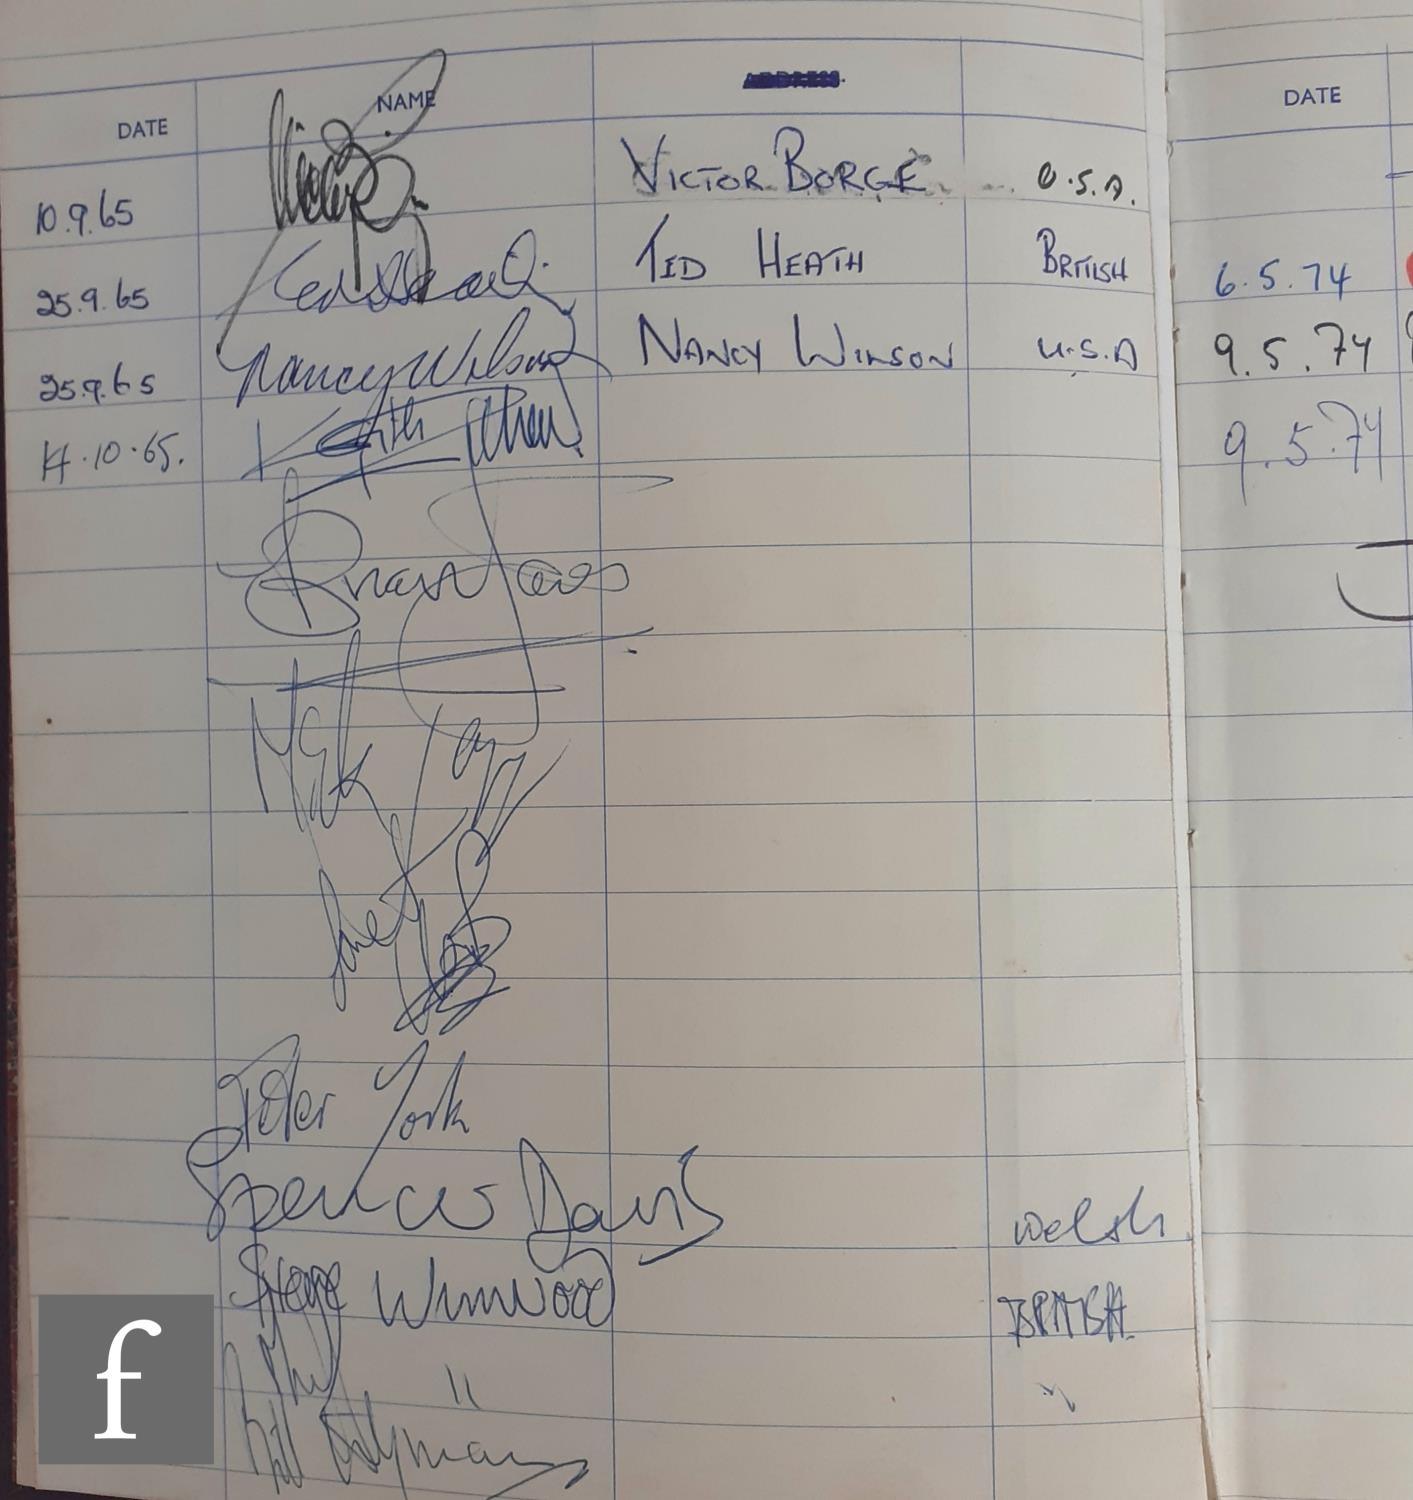 DATE NAME ADDRESS DATE
10.9.65 Victor Borge VICTOR BORGE U.S.A.
25.9.65 Ted Heath TED HEATH BRITISH 6.5.74
25.9.65 Nancy Wilson NANCY WILSON U.S.A 9.5.74
14.10.65. Keith 9.5.74
Brian Jones
Mick
Peter York
Spencer Davis Welsh
Steve Winwood BRITISH
Muff " "
Bill Wyman
f